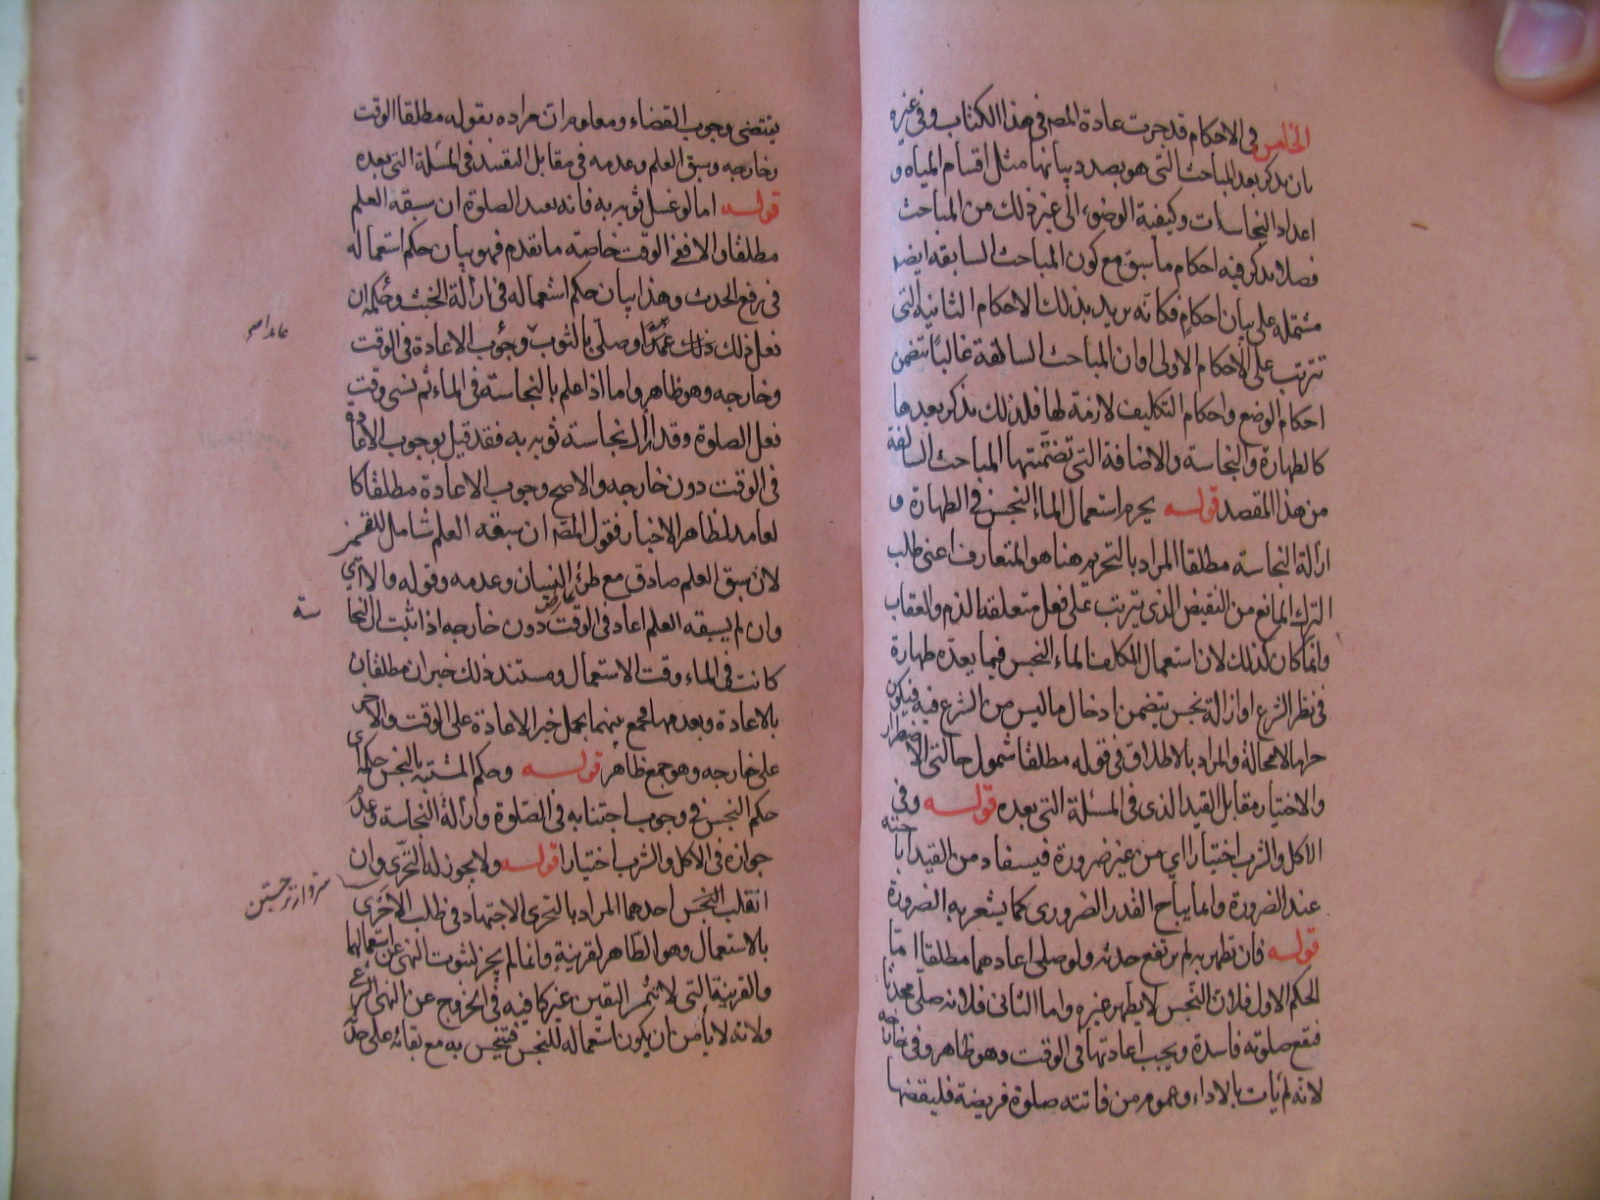 الخامس في الاحكام قد جرت عادة المصه في هذا الكتاب وفي غيره
بان يذكر بعد المباحث التي هو بصدد بيانها مثل اقسام المياه و
اعداد النجاسات وكيفية الوضوء الى غير ذلك من المباحث
فصلا يذكر فيه احكام ما سبق مع كون المباحث السابقه ايضا
مشتمله على بيان احكام فكانه يريد بذلك الاحكام الثانية التي
تترتب على الاحكام الاولى او ان المباحث السابقة غالبا تتضمن
احكام الوضع واحكام التكليف لازمة لها فلذلك يذكر بعدها
كالطهارة والنجاسة والاضافة التي تضمنتها المباحث السالفة
من هذا المقصد قوله يحرم استعمال الماء النجس في الطهارة و
ازالة النجاسة مطلقا المراد بالتحريم هنا هو المتعارف اعنى طلب
الترك المانع من النقيض الذى يترتب على فعل متعلقه الذم والعقاب
وانما كان كذلك لان استعمال المكلف الماء النجس فيما يعده طهارة
في نظر الشرع او ازالة نجس يتضمن ادخال ما ليس من الشرع فيه فيكون
حراما لا محالة والمراد بالاطلاق في قوله مطلقا شمول حالتي الاضطرار
والاختيار مقابل القيد الذى في المسئلة التي بعده قوله وفي
الاكل والشرب اختيارا اي من غير ضرورة فيستفاد من القيد اباحته
عند الضرورة وانما يباح القدر الضرورى كما يشعر به الضرورة
قوله فان تطهر به لم يرتفع حدثه ولو صلى اعادهما مطلقا اما
الحكم الاول فلان النجس لا يطهر غيره واما الثانى فلانه صلى محدثا
فتقع صلوته فاسدة ويجب اعادتها في الوقت وهو ظاهر وفي خارجه
لانه لم يات بالاداء وعموم من فاتته صلوة فريضة فليقضها
يقتضى وجوب القضاء ومعلوم ان مراده بقوله مطلقا الوقت
وخارجه وسبق العلم وعدمه في مقابل التقييد في المسئلة التي بعده
قوله اما لو غسل ثوبه به فانه يعيد الصلوة ان سبقه العلم
مطلقا والا ففى الوقت خاصة ما تقدم فهو بيان حكم استعماله
في رفع الحدث وهذا بيان حكم استعماله في ازالة الخبث وحكمه ان
فعل ذلك عمدا وصلى بالثوب وجوب الاعادة في الوقت
عامدا صو
وخارجه وهو ظاهر واما اذا علم بالنجاسة في الماء ثم نسى وقت
فعل الصلوة وقد ازال نجاسة ثوبه به فقد قيل بوجوب الاعادة
في الوقت دون خارجه والاصح وجوب الاعادة مطلقا كا
لعامد لظاهر الاخبار فقول المصه ان سبقه العلم شامل للقسمين
لان سبق العلم صادق مع طرو النسيان وعدمه وقوله والا اي
وان لم يسبقه العلم اعاد في الوقت دون خارجه اذا ثبت ان النجا
سة
كانت في الماء وقت الاستعمال ومستند ذلك خبران مطلقان
بالاعادة وبعدمها فجمع بينهما بحمل خبر الاعادة على الوقت والاخر
على خارجه وهو جمع ظاهر قوله وحكم المشتبه بالنجس حكمه
حكم النجس في وجوب اجتنابه في الصلوة وازالة النجاسة وعدم
جوازه في الاكل والشرب اختيارا قوله ولا يجوز له التحرى وان
انقلب النجس احدهما المراد بالتحرى الاجتهاد في طلب الاحرى
بالاستعمال وهو الطاهر لقرينة وانما لم يجز لثبوت النهى عن استعمالهما
والقرينة التي لا تثمر اليقين غير كافية في الخروج عن النهى الشرعي
ولانه لا يأمن ان يكون استعماله للنجس فيتنجس به مع بقائه على حدثه